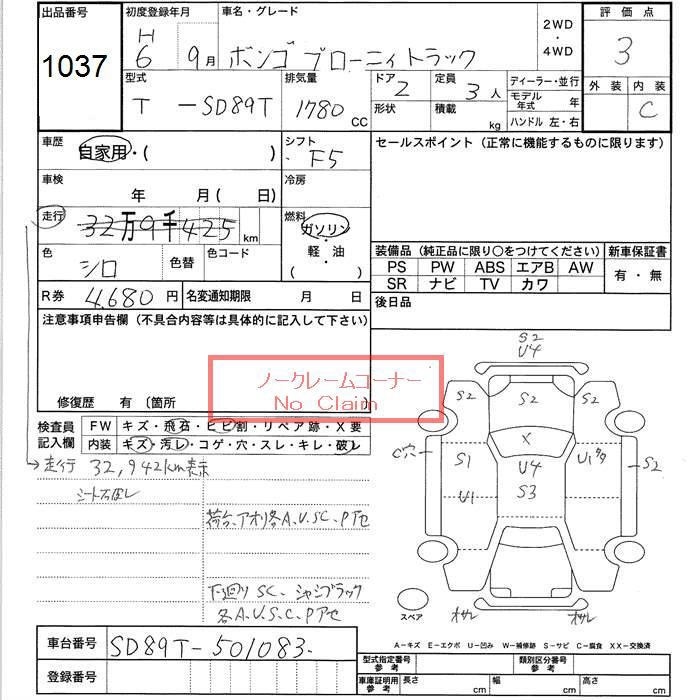 出品番号 初度登録年月 車名・グレード 2WD・4WD 評価点
1037 H6 9月 ボンゴ ブローニィトラック 3
型式 排気量 ドア 定員 ディーラー・並行 外装 内装
T-SD89T 1780 CC 2 3人 モデル年式 年 C
形状 積載 kg ハンドル 左・右
車歴 自家用・( ) シフト F5 セールスポイント（正常に機能するものに限ります）
車検 年 月( 日) 冷房
走行 32万9千425 km 燃料 ガソリン・軽油 ( )
色 シロ 色替 色コード
装備品（純正品に限り○をつけてください） 新車保証書
PS PW ABS エアB AW 有・無
SR ナビ TV カワ
R券 4,680円 名変通知期限 月 日 後日品
注意事項申告欄（不具合内容等は具体的に記入して下さい）
ノークレームコーナー
No Claim
修復歴 有 〔箇所
検査員記入欄 FW キズ・飛石・ヒビ割・リペア跡・X要
内装 キズ・汚レ・コゲ・穴・スレ・キレ・破レ
→走行 32,942km表示
荷台、アオリ各A.U.SC.Pアセ
下廻りSC、シャシブラック
各A.U.S.C.Pアセ
S2
U4
S2 S2 S2
C穴 S1 X U1 S2
U4
U1 S3
スペア
A−キズ E−エクボ U−凹み W−補修跡 S−サビ C−腐食 XX−交換済
車台番号 SD89T-501083-
登録番号
型式指定番号 参考 類別区分番号 参考
車庫証明用 参考 長さ cm 幅 cm 高さ cm